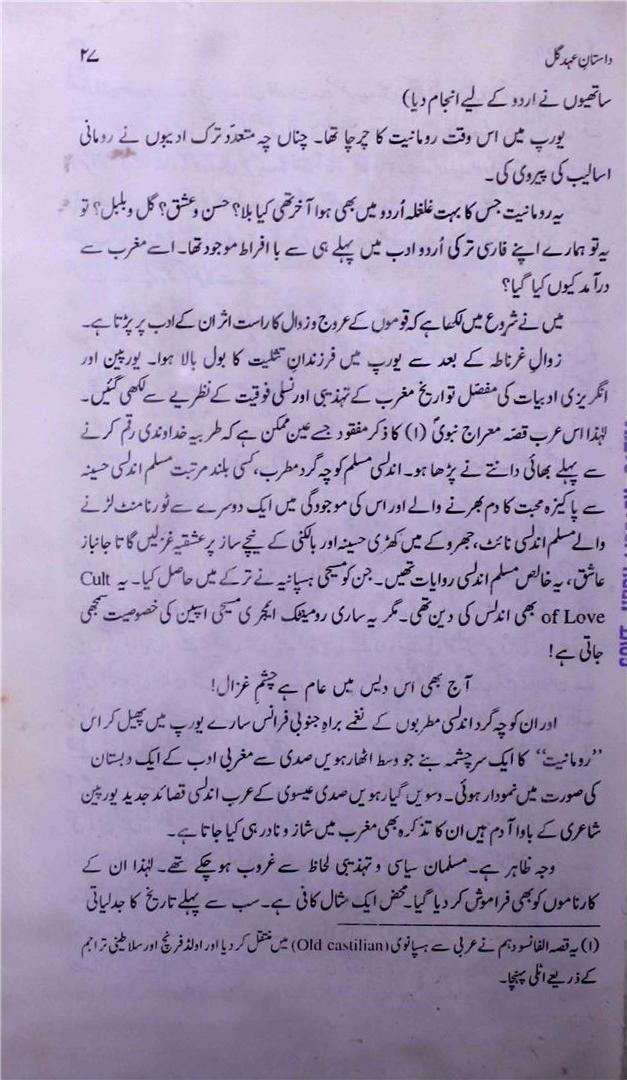 داستانِ عہدِ گل
۲۷
ساتھیوں نے اردو کے لیے انجام دیا)
یورپ میں اس وقت رومانیت کا چرچا تھا۔ چناں چہ متعدّد ترک ادیبوں نے رومانی
اسالیب کی پیروی کی۔
یہ رومانیت جس کا بہت غلغلہ اُردو میں بھی ہوا آخر تھی کیا بلا؟ حسن و عشق؟ گل و بلبل؟ تو
یہ تو ہمارے اپنے فارسی ترکی اُردو ادب میں پہلے ہی سے با افراط موجود تھا۔ اسے مغرب سے
درآمد کیوں کیا گیا؟
میں نے شروع میں لکھا ہے کہ قوموں کے عروج و زوال کا راست اثر ان کے ادب پر پڑتا ہے۔
زوالِ غرناطہ کے بعد سے یورپ میں فرزندانِ تثلیت کا بول بالا ہوا۔ یورپین اور
انگریزی ادبیات کی مفصّل تواریخ مغرب کے تہذیبی اور نسلی فوقیت کے نظریے سے لکھی گئیں۔
لہٰذا اس عرب قصّہ معراج نبویؐ (۱) کا ذکر مفقود جسے عین ممکن ہے کہ طربیہ خداوندی رقم کرنے
سے پہلے بھائی دانتے نے پڑھا ہو۔ اندلسی مسلم کوچہ گرد مطرب، کسی بلند مرتبت مسلم اندلسی حسینہ
سے پاکیزہ محبت کا دم بھرنے والے اور اس کی موجودگی میں ایک دوسرے سے ٹورنامنٹ لڑنے
والے مسلم اندلسی نائٹ، جھروکے میں کھڑی حسینہ اور بالکنی کے نیچے ساز پر عشقیہ غزلیں گاتا جانباز
عاشق، یہ خالص مسلم اندلسی روایات تھیں۔ جن کو مسیحی ہسپانیہ نے ترکے میں حاصل کیا۔ یہ Cult
of Love بھی اندلس کی دین تھی۔ مگر یہ ساری رومینٹک ایجری مسیحی اسپین کی خصوصیت سمجھی
جاتی ہے!
آج بھی اس دیس میں عام ہے چشمِ غزال!
اور ان کوچہ گرد اندلسی مطربوں کے نغمے براہِ جنوبی فرانس سارے یورپ میں پھیل کر اس
”رومانیت“ کا ایک سرچشمہ بنے جو وسط اٹھارہویں صدی سے مغربی ادب کے ایک دبستان
کی صورت میں نمودار ہوئی۔ دسویں گیارہویں صدی عیسوی کے عرب اندلسی قصائد جدید یورپین
شاعری کے باوا آدم ہیں ان کا تذکرہ بھی مغرب میں شاز و نادر ہی کیا جاتا ہے۔
وجہ ظاہر ہے۔ مسلمان سیاسی و تہذیبی لحاظ سے غروب ہو چکے تھے۔ لہٰذا ان کے
کارناموں کو بھی فراموش کر دیا گیا۔ محض ایک مثال کافی ہے۔ سب سے پہلے تاریخ کا جدلیاتی
(۱) یہ قصہ الفانسو دہم نے عربی سے ہسپانوی (Old castilian) میں منتقل کر دیا اور اولڈ فرنچ اور سلاطینی تراجم
کے ذریعے اٹلی پہنچا۔